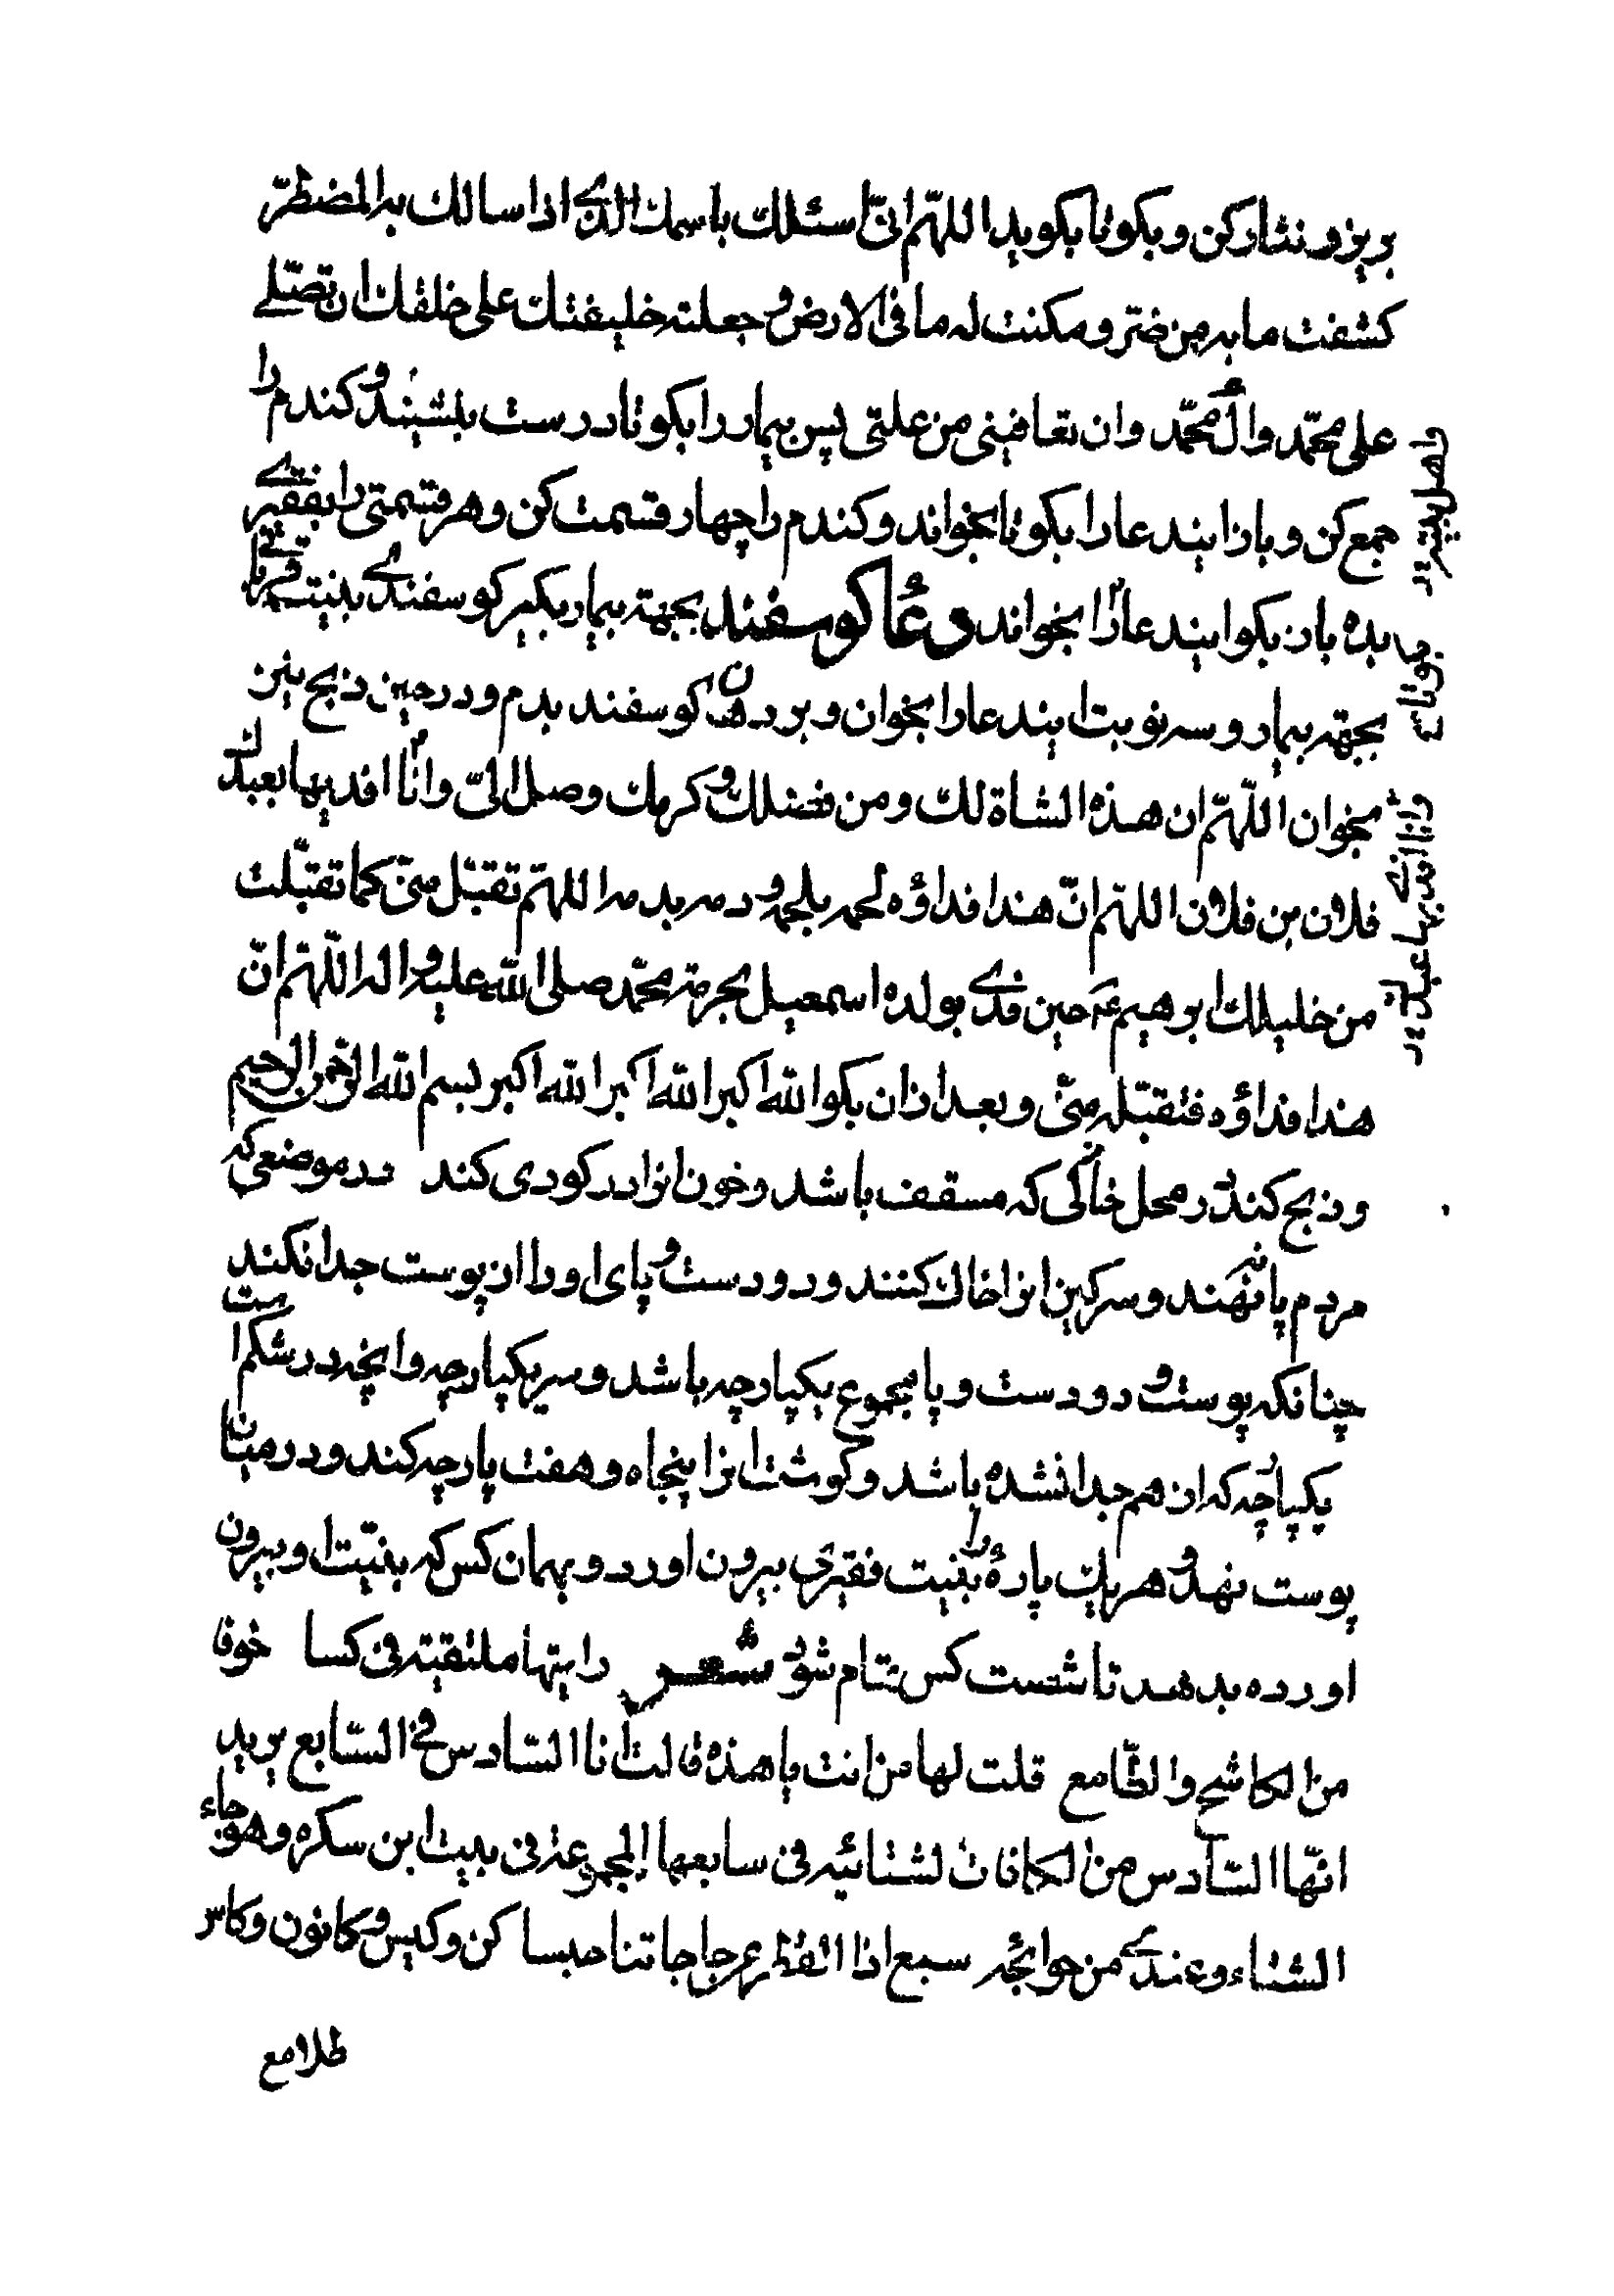 بریز و نثار کن و بکو تا بکوید اللهّم انّی اسئلك باسمك الذی اذا سالك به المضطرّ
کشفت ما به من ضر و مکنت له ما فی الارض و جعلته خلیفتك علی خلقك ان تصلّے
علی محمّد وال محمّد وان تعافینی من علتی پس بیمار را بکو تا درست بنشیند و کندم را
جمع کن و باز ایندعا را بکو تا بخواند و کندم را چهار قسمت کن و هر قسمتی را بفقیرے
بده باز بکو ایندعا را بخواند دعا کوسفند بجهته بیمار بکیر کوسفندے بنیت قربانے
بجهته بیمار و سه نوبت ایندعا را بخوان و بر دهن کوسفند بدم و در حین ذبح نیز
بخوان اللّهّم ان هذه الشاة لك و من فضلك و کرمك وصل الیّ وانا افدیها بعبدك
فلان بن فلان اللهّم انّ هذا فداؤه لحمه بلحمه و دمه بدمه اللهّم تقبّل منّی کما تقبّلت
من خلیلك ابرهیم حین فدی بولده اسمعیل بحرمته محمّد صلی الله علیه واله اللّهّم انّ
هذا فداؤه فتقبّله منّی و بعد از ان بکو الله اکبر الله اکبر الله اکبر بسم الله الرحمن الرحیم
و ذبح کند در محل خاکی که مسقف باشد و خون انرا در کودی کند در موضعی که
مردم پا ننهند و سرکین انرا خاك کنند و دو دست و پای او را از پوست جدا نکند
چنانکه پوست و دو دست و پا مجموع یکپارچه باشد و سر یکپارچه و انچه در شکم است
یکپارچه که از هم جدا نشده باشد و کوشت انرا پنجاه و هفت پارچه کند و در میان
پوست نهد و هر یك پارهٔ را بنیت فقیری بیرون اورد و بهمان کس که بنیّت او بیرون
اورده بدهد تا شصت کس تمام شود شعر رایتها ملتقیته فی کسا خوفا
من الکاشح والطّامع قلت لها من انت یا هذه قالت انا السّادس فی السّابع یرید
انّها السّادس من الکافات الشتائیه فی سابعها المجموعة فی بیت ابن سکره وهو جاء
الشتاء وعندی من حوائجه سبع اذا القطر عن حاجاتنا حبسا کن وکیس وکانون وکاس
طلا مع